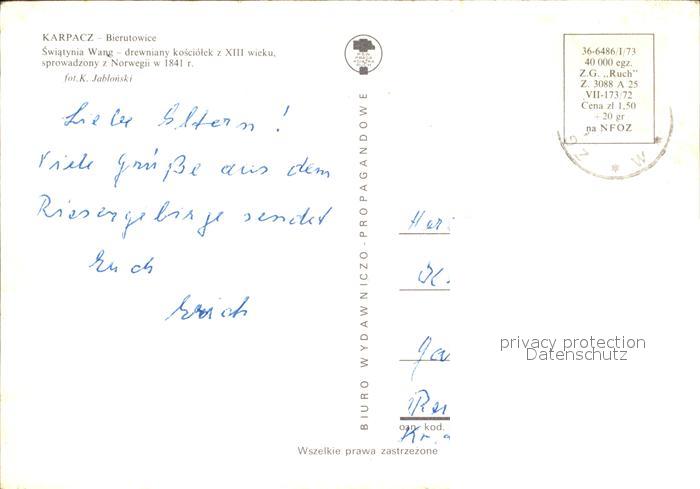 KARPACZ – Bierutowice
Świątynia Wang – drewniany kościółek z XIII wieku,
sprowadzony z Norwegii w 1841 r.
fot.K. Jabłoński
Liebe Eltern!
Viele Grüße aus dem
Riesengebirge sendet
Euch
Erich
BIURO WYDAWNICZO-PROPAGANDOWE
36-6486/I/73
40 000 egz.
Z.G. „Ruch"
Z. 3088 A 25
VII-173/72
Cena zł 1,50
+ 20 gr
na NFOZ
GZ * W *
privacy protection
Datenschutz
kod.
Wszelkie prawa zastrzeżone